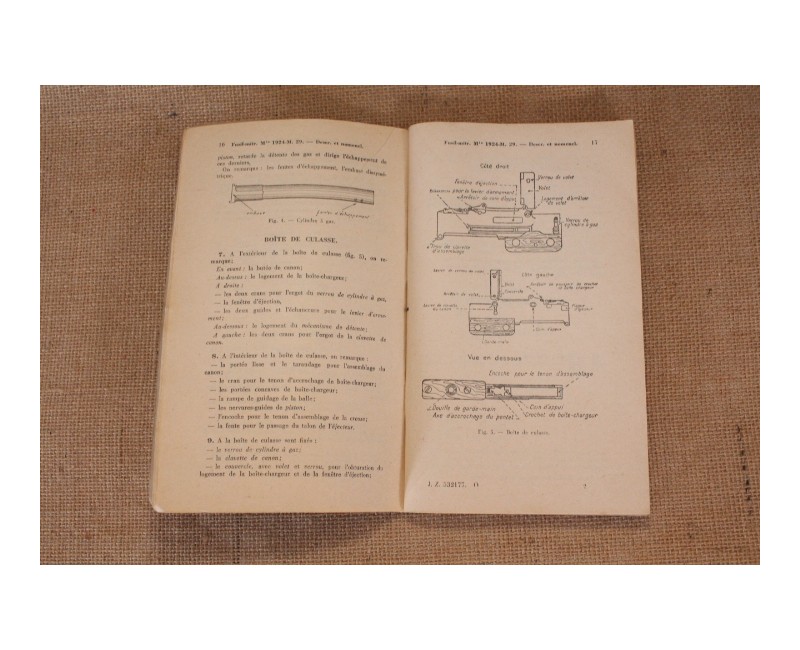 10 Fusil-mitr. Mle 1924-M. 29. — Descr. et nomencl.
ses derniers,
On remarque : les fentes d'échappement, l'embase
trique,
embase
fentes d'échappement
Fig. 4. — Cylindre à gaz.
BOÎTE DE CULASSE.
7. A l'extérieur de la boîte de culasse (fig. 5), on re-
marque;
En avant : la butée de canon;
Au-dessus : le logement de la boîte-chargeur;
A droite :
— les deux crans pour l'ergot du verrou de cylindre à gaz,
— la fenêtre d'éjection,
— les deux guides et l'échancrure pour le levier d'arme-
ment;
Au-dessous : le logement du mécanisme de détente;
A gauche : les deux crans pour l'ergot de la clavette de
canon.
8. A l'intérieur de la boîte de culasse, on remarque :
— la portée lisse et le taraudage pour l'assemblage du
canon;
— le cran pour le tenon d'accrochage de boîte-chargeur;
— les parties concaves de boîte-chargeur;
— la rampe de guidage de la balle;
— les nervures-guides de piston;
— l'encoche pour le tenon d'assemblage de la crosse;
— la fente pour le passage du talon de l'éjecteur.
9. A la boîte de culasse sont fixés :
— le verrou de cylindre à gaz;
— la clavette de canon;
— le couvercle, avec volet et verrou, pour l'obturation du
logement de la boîte-chargeur et de la fenêtre d'éjection;
Fusil-mitr. Mle 1924-M. 29. — Descr. et nomencl. 17
Côté droit
Fenêtre d'éjection
Verrou de volet
Volet
Logement d'arrêtoir
de volet
Verrou de
cylindre à gaz
d'assemblage
Côté gauche
Volet
Couvercle
Coin d'appui
Garde-main
Vue en dessous
Encoche pour le tenon d'assemblage
Douille de garde-main
Coin d'appui
Axe d'accrochage du portant
Crochet de boîte-chargeur
Fig. 5. — Boîte de culasse.
J. Z. 532177. O